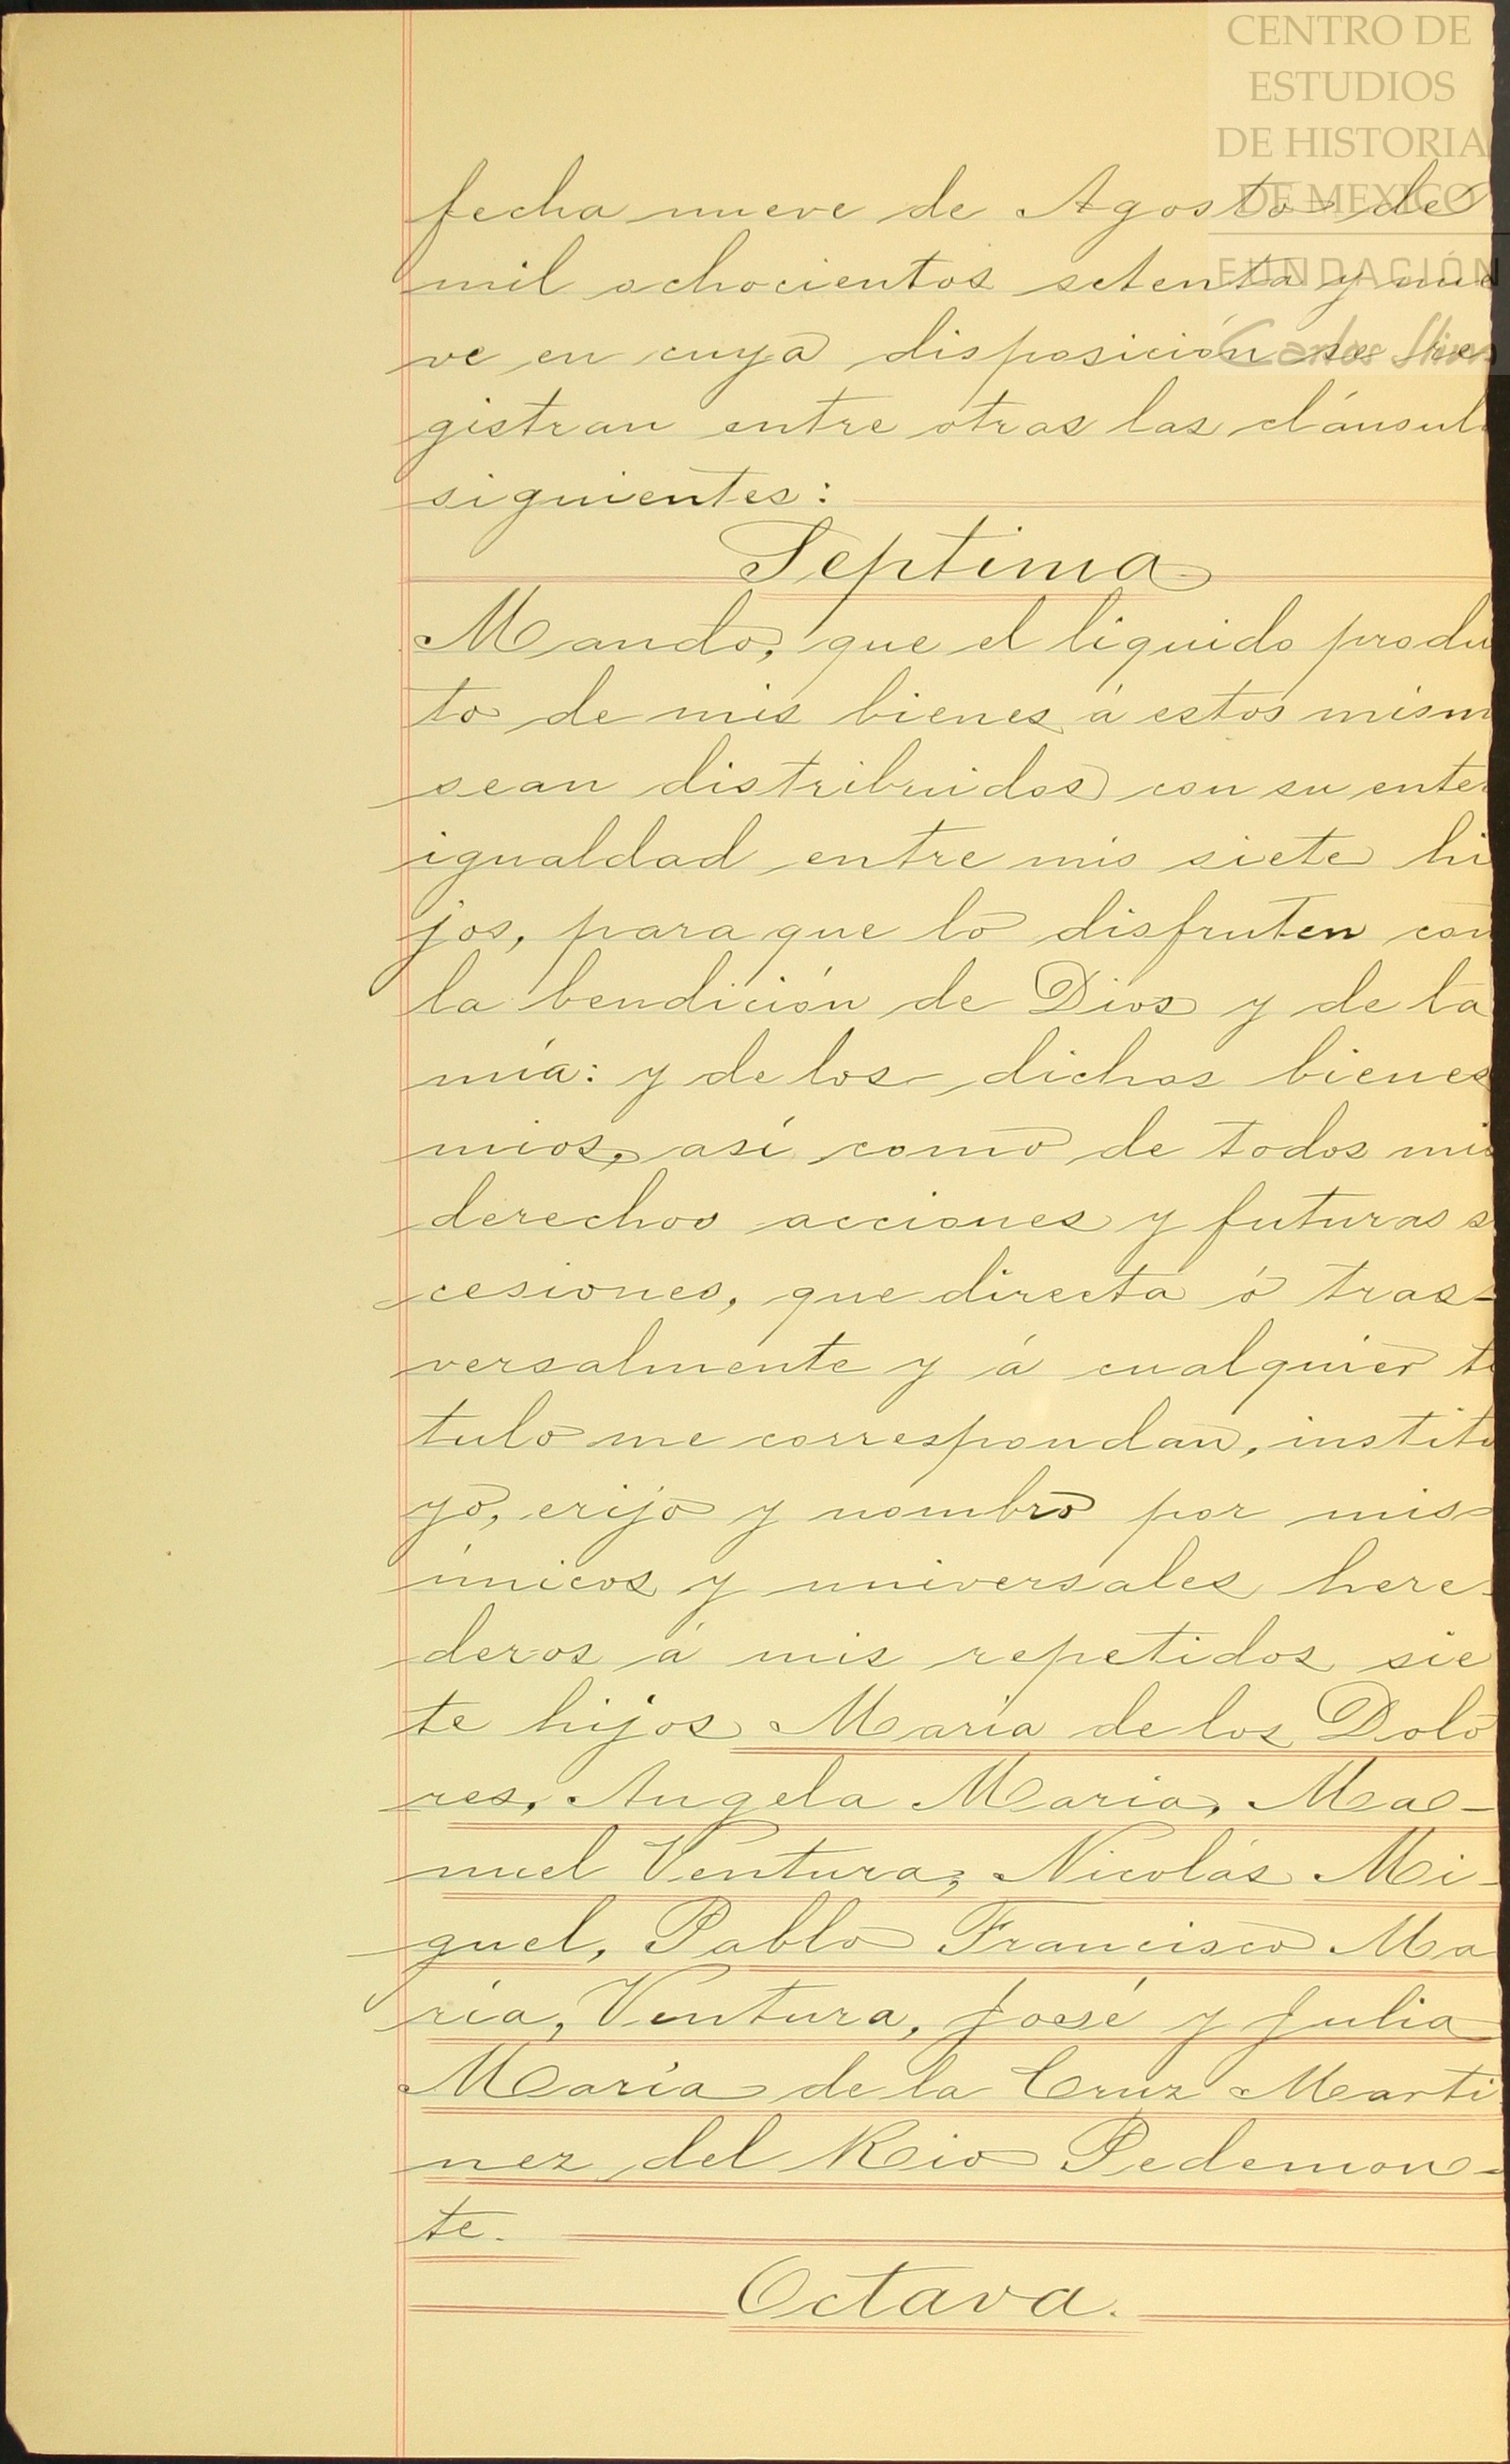 CENTRO DE
ESTUDIOS
DE HISTORIA
DE MEXICO
FUNDACIÓN
Carlos Slim
fecha nueve de Agosto de
mil ochocientos setenta y nue
ve en cuya disposición se re
gistran entre otras las cláusul
siguientes:
Septima
Mando, que el liquido produ
to de mis bienes á estos mism
sean distribuidos con su enter
igualdad entre mis siete hi
jos, para que lo disfruten con
la bendición de Dios y de la
mía: y de los dichos bienes
mios, así como de todos mis
derechos acciones y futuras s
cesiones, que directa ó tras-
versalmente y á cualquier ti
tulo me correspondan, institu
yo, erijo y nombro por mis
únicos y universales here-
deros á mis repetidos sie
te hijos María de los Dolo
res, Angela Maria, Ma-
nuel Ventura, Nicolás Mi-
guel, Pablo Francisco Ma
ría, Ventura, José y Julia
María de la Cruz Marti
nez del Rio Pedemon-
te.
Octava.